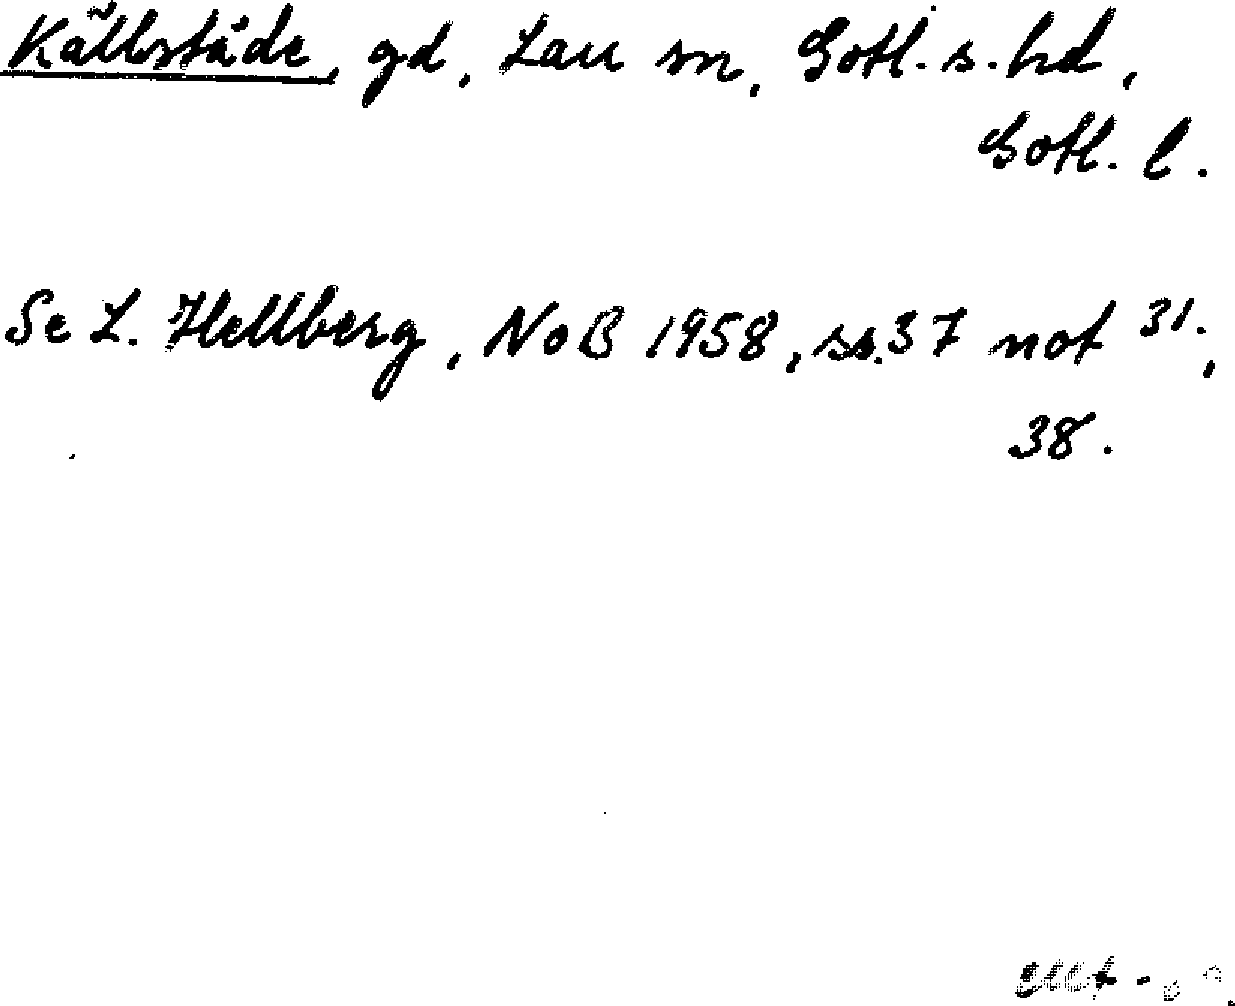 Källstäde, gd, Lau sn, Gotl. s. hd,
Gotl. l.
Se L. Hellberg, NoB 1958, ss. 37 not 31.,
38.